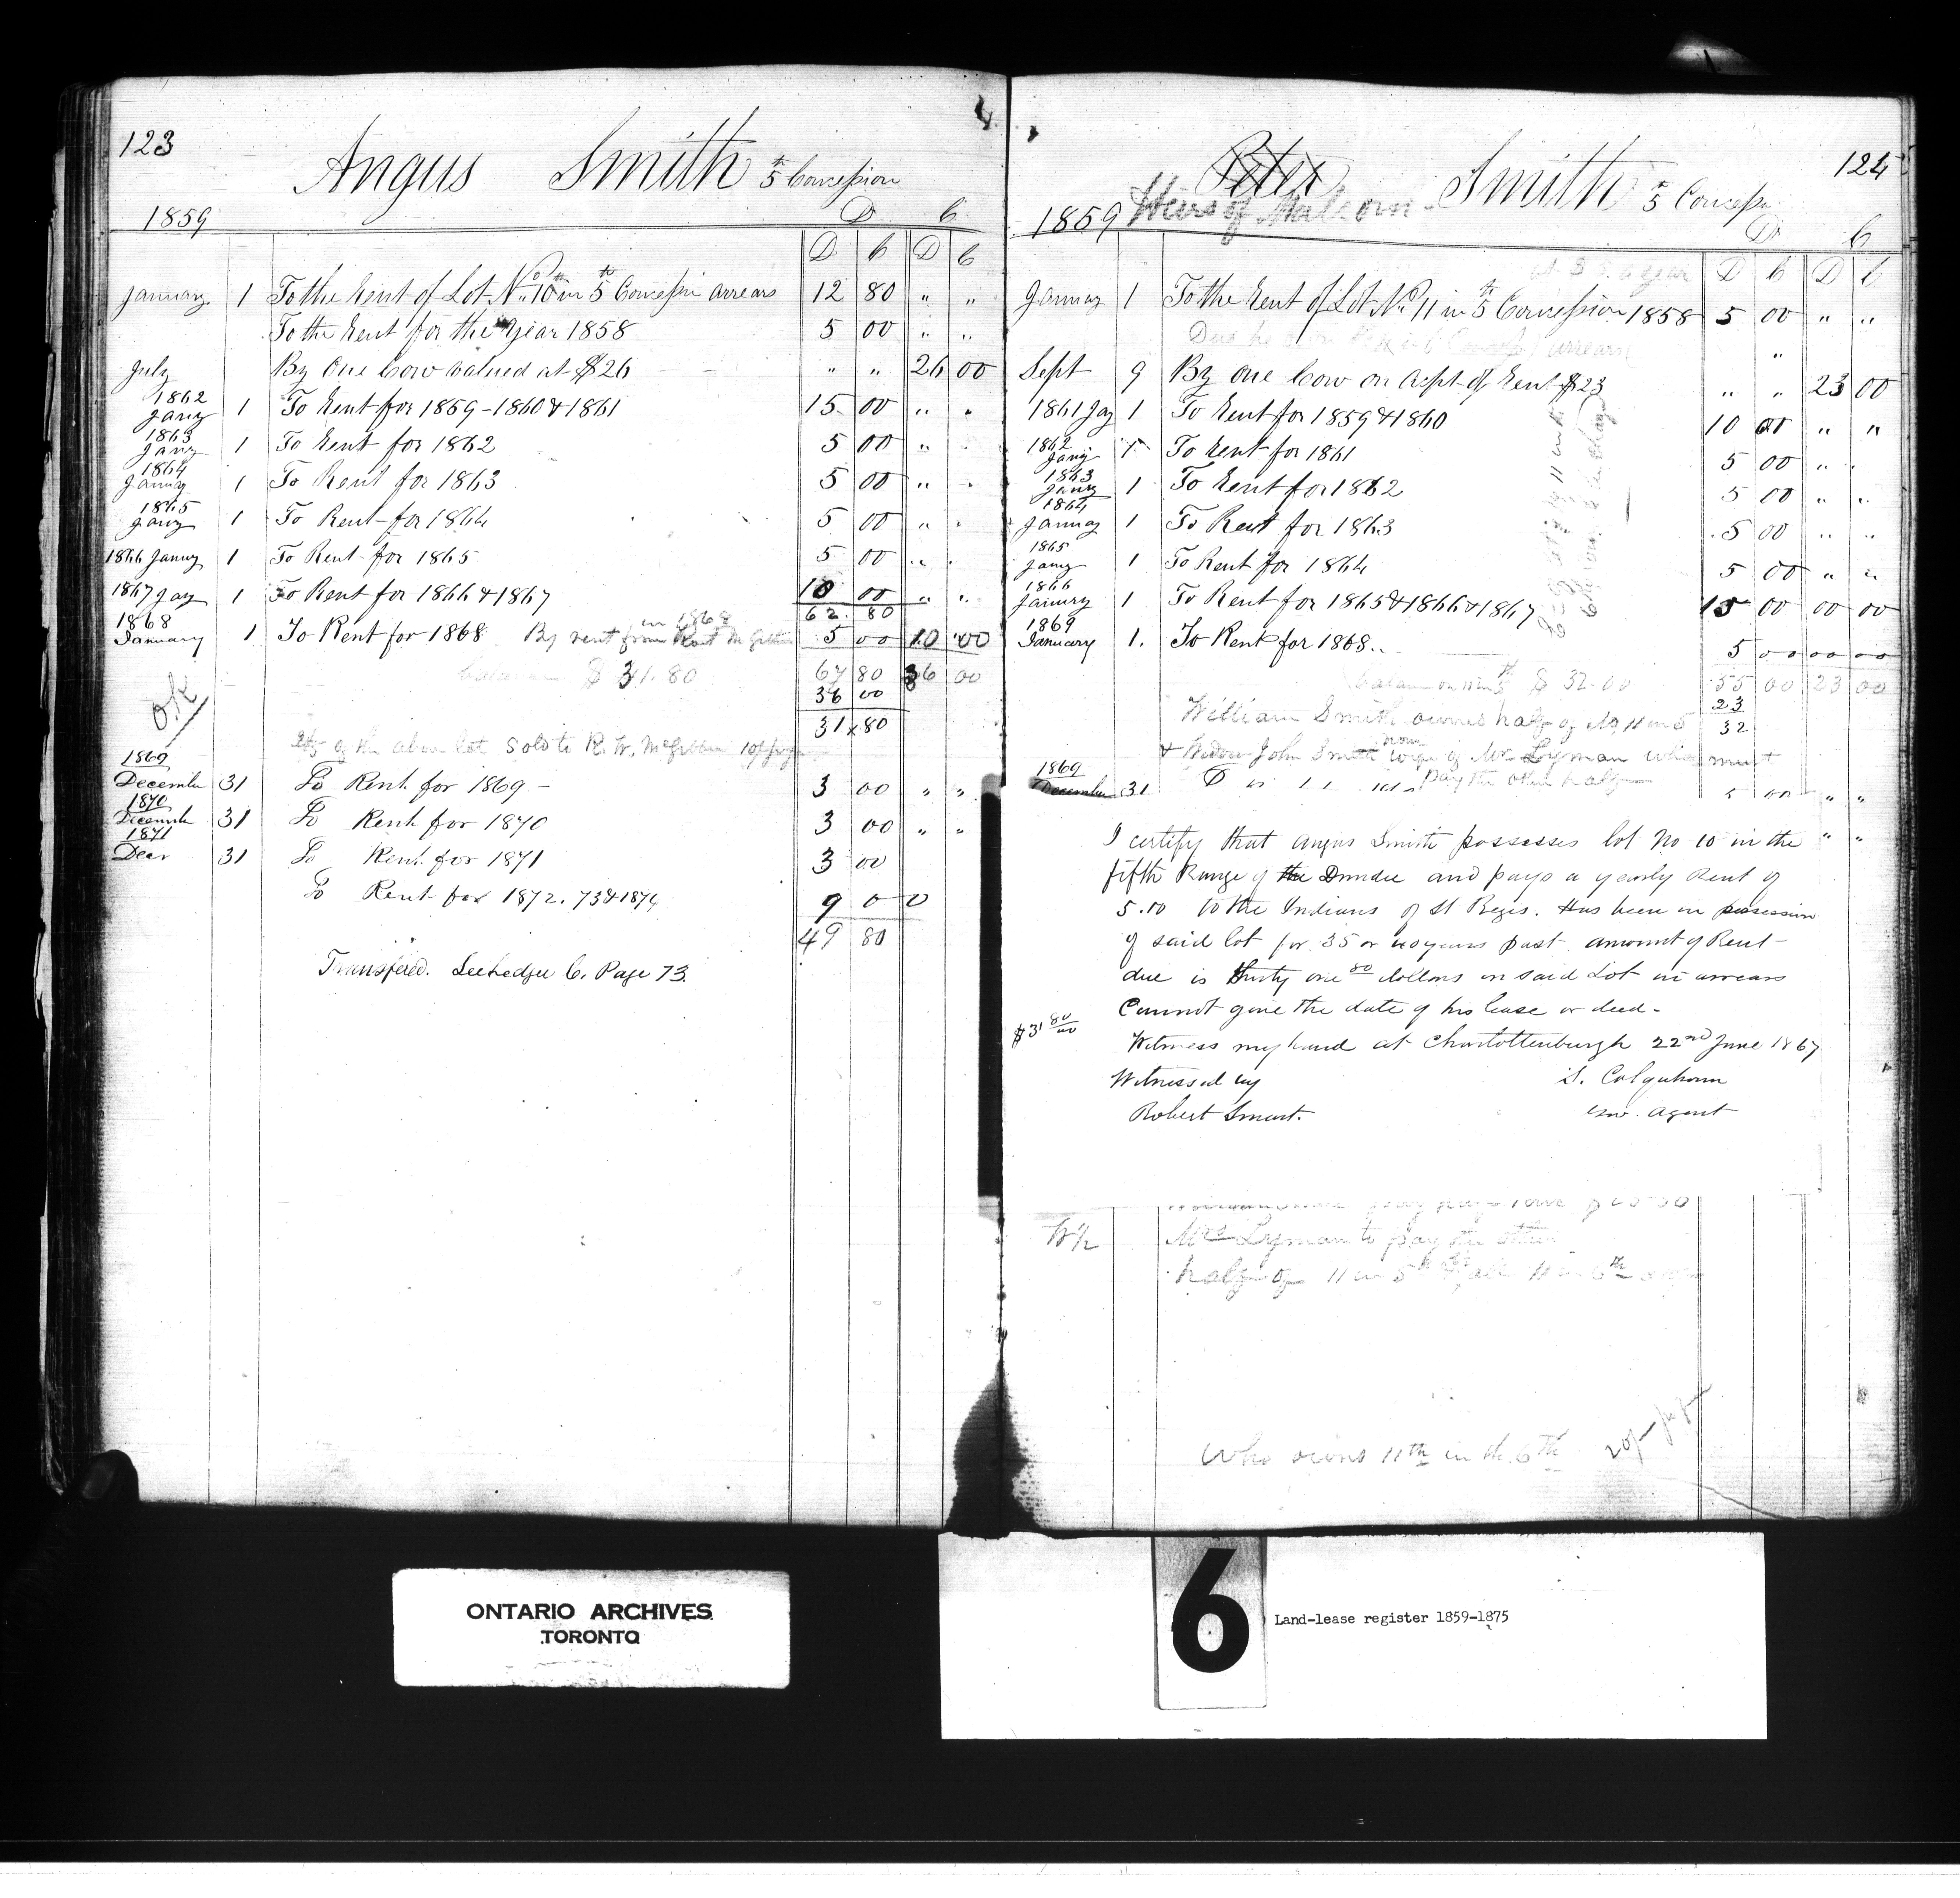 123
Angus Smith 5th Concession
1859 D C
D C D C
January 1 To the Rent of Lot No. 10 in 5th Concession arrears 12 80 " "
To the Rent for the Year 1858 5 00 " "
July By One Cow valued at $26 " " 26 00
1862 Jany 1 To Rent for 1859-1860 & 1861 15 00 " "
1863 Jany 1 To Rent for 1862 5 00 " "
1864 January 1 To Rent for 1863 5 00 " "
1865 Jany 1 To Rent for 1864 5 00 " "
1866 Januy 1 To Rent for 1865 5 00 " "
1867 Jay 1 To Rent for 1866 & 1867 10 00 " "
62 80
1868 January 1 To Rent for 1868 By rent from in 1868 5 00 10 00
balance $31.80 67 80 36 00
36 00
O.K
31 80
of the above lot sold to R. W. McGibbon
1869
December 31 To Rent for 1869 - 3 00 " "
1870
December 31 To Rent for 1870 3 00 " "
1871
Decr 31 To Rent for 1871 3 00
To Rent for 1872. 73 & 1874 9 00
49 80
Transfered. See Ledger C. Page 73.
124
Peter Smith 5th Concessi
1859 Heirs of Malcom D C
at $5. a year D C D C
January 1 To the Rent of Lot No. 11 in 5th Concession 1858 5 00 " "
arrears "
Sept 9 By One Cow on Acpt of Rent $23 " " 23 00
1861 Jay 1 To Rent for 1859 & 1860 10 00 " "
1862 Jany 1 To Rent for 1861 5 00 " "
1863 Jany 1 To Rent for 1862 5 00 " "
1864 January 1 To Rent for 1863 5 00 " "
1865 Jany 1 To Rent for 1864 5 00 " "
1866 January 1 To Rent for 1865 & 1866 & 1867 15 00 00 00
1869
January 1. To Rent for 1868.. 5 00 00 00
balance on 11 in 5th $32.00 55 00 23 00
23
William Smith ownes half of No 11 in 5 32
& Widow John Smith now wife of Mr Lyman who must
pay the other half
1869
December 31 5 00 " "
I certify that Angus Smith possesses lot No 10 in the " "
fifth Range of the Dundee and pays a yearly Rent of
5.00 to the Indians of St Regis. Has been in possession
of said lot for 35 or 40 years past. amount of Rent
due is thirty one 80 dollars on said Lot in arrears
Cannot give the date of his lease or deed.
$31 80/00
Witness my hand at Charlottenburgh 22nd June 1867
Witnessed by S. Colquhoun
Robert Smart. Agent
Mrs Lyman to pay the other
half of 11 in 5th
Who owns 11th in the 6th
ONTARIO ARCHIVES
TORONTO
6
Land-lease register 1859-1875